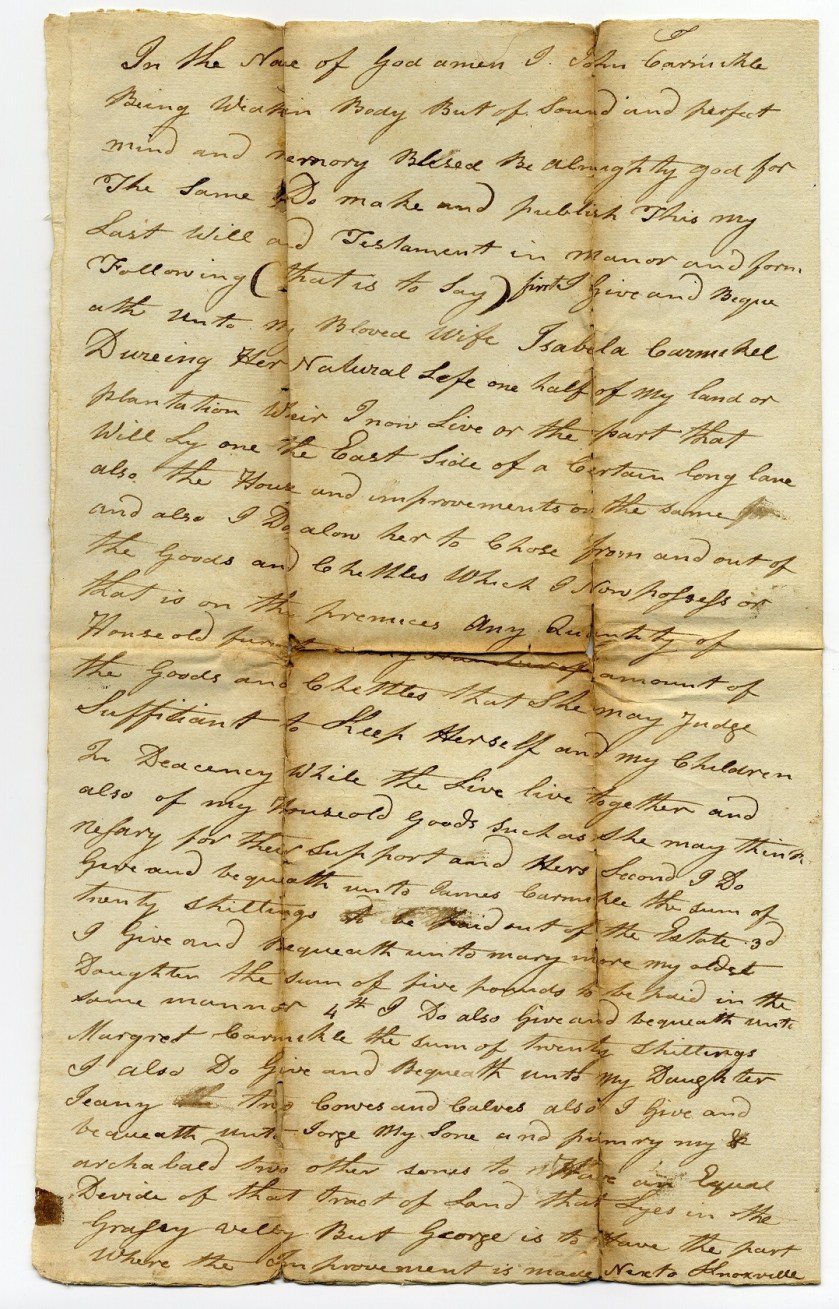 In the Name of God amen I John Carmikle
Being Weak in Body But of Sound and perfect
mind and memory Blesed Be almighty god for
The Same Do make and publish This my
Last Will and Testament in manor and form
Following (that is to Say) first I Give and Beque
ath unto my Bloved Wife Isabela Carmikel
Dureing Her Natural Life one half of my land or
plantation Wheir I now Live or the part that
Will Ly one the East Side of a Certain long lane
also the House and improvements on the same
and also I Do alow her to Chose from and out of
the Goods and Chettles Which I Now possess or
that is on the premices Any Quantity of
Houseold amount of
the Goods and Chettles that She may Judge
Suffitiant to Keep Herself and my Children
In Deacency While the Live live together and
also of my Houseold Goods such as She may think
nesary for their Support and Hers Second I Do
Give and bequeath unto James Carmikle the sum of
twenty shillings to be paid out of the Estate 3d
I Give and bequeath unto mary more my oldest
Daughter the sum of five pounds to be paid in the
same mannor 4th I Do also Give and bequeath unto
Margret Carmikle the sum of twenty shillings
I also Do Give and Bequeath unto my Daughter
Jeany two Cowes and Calves also I Give and
bequeath unto Jorge My Sone and pumry my &
archabald two other sones to Have an Equal
Devide of that tract of Land that Lyes in the
Grassy velly But George is to Have the part
Where the Improvement is made Nex to Knoxville